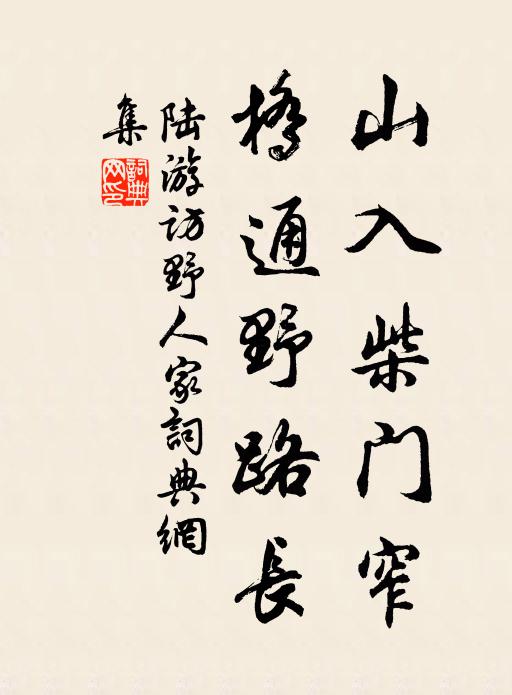 山入柴门窄
橋通野路長
陆游访野人家詞典網
集
詞典
网印